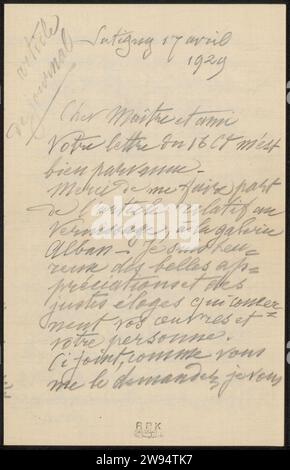 article
de journal
Satigny 17 avril
1929
Cher Maître et ami
Votre lettre du 16 Ct m'est
bien parvenue -
Merci de me faire part
de l'article relatif au
Vernissage, à la galerie
Alban - Je suis heu-
reux des belles ap-
préciations et des
justes éloges qui concer-
nent vos œuvres et
votre personne.
Ci joint, comme vous
me le demandez, je vous
R.P.K
alamy
Image ID: 2W94TK7
www.alamy.com